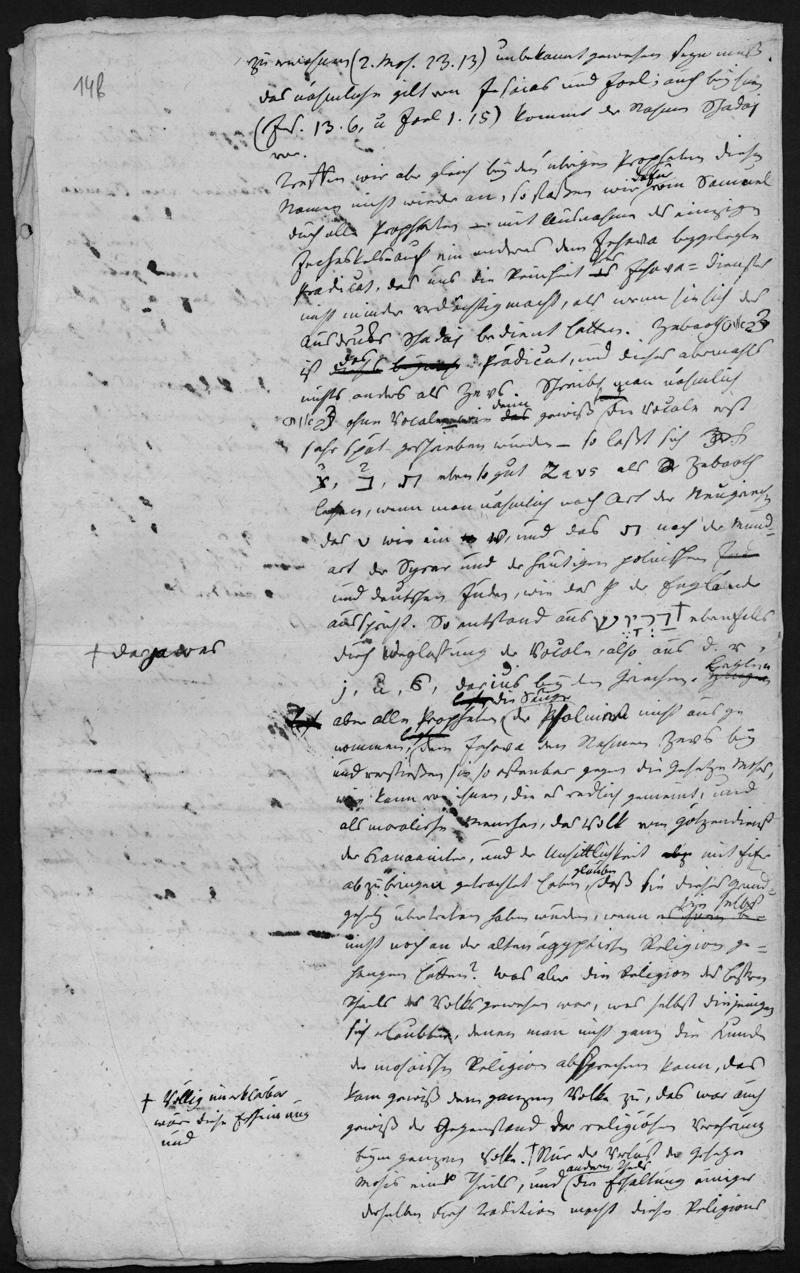 148
zu erwähnen (2. Mos. 23.13) unbekannt gewesen seyn muß.
das nähmliche gilt von Jesaias und Joel; auch bey ihnen
(Jes. 13.6, u Joel 1.15) kommt der Nahme Schadaj
vor.
Treffen wir aber gleich bey den übrigen Propheten diesen
Namen nicht wieder an, so stoßen wir dafür vom Samuel
durch alle Propheten — mit Ausnahme des einzigen
Hesekiels auf ein anderes dem Jehova beygelegtes
Prädicat, das uns die Reinheit des Jehova-dienstes
nicht minder verdächtig macht, als wenn sie sich des
Ausdrucks Schadaj bedient hätten. Zebaoth
ist das Prädicat, und dieses abermahls
nichts anders als Zevs. Schreibt man nähmlich
ohne Vocale denn gewiß die Vocale erst
sehr spät geschrieben wurden — so läßt sich
צ, ב, ת eben so gut Zevs als Zebaoth
lesen, wenn man nähmlich nach Art der Neugriechen
das v wie ein w, und das ת nach der Mund-
art der Syrer und der heutigen polnischen
und deutschen Juden, wie das th der Engländer
ausspricht. So entstand aus דריוש † ebenfalls
† darjawes
durch Weglassung der Vocale, also aus d, r,
j, u, s, darius bey den Griechen.
aber alle Propheten (der Psalmist nicht ausge-
nommen, dem Jehova den Nahmen Zevs bey
und verstießen sie so offenbar gegen die Gesetze Moses,
wie kann von ihnen, die es redlich gemeint, und
als moralische Menschen, das Volk vom Götzendienst
der Kananiter, und der Unsittlichkeit mit Eifer
abzubringen getrachtet haben, glauben, daß sie dieses Grund-
gesetz übertreten haben würden, wenn sie selbst
nicht noch an der alten ägyptischen Religion ge-
hangen hätten? Was aber die Religion des bessern
Theils des Volks gewesen war, was selbst diejenigen
sich erlaubten, denen man nicht ganz die Kunde
der mosaischen Religion absprechen kann, das
kam gewiß dem ganzen Volke zu, das war auch
gewiß der Gegenstand der religiösen Verehrung
beym ganzen Volke. † Nur der Verlust der Gesetze
† Völlig unerklärbar
wäre diese Erscheinung
und
Mosis eines Theils, und andern Theils die Erhaltung einiger
derselben durch Tradition macht diese Religions